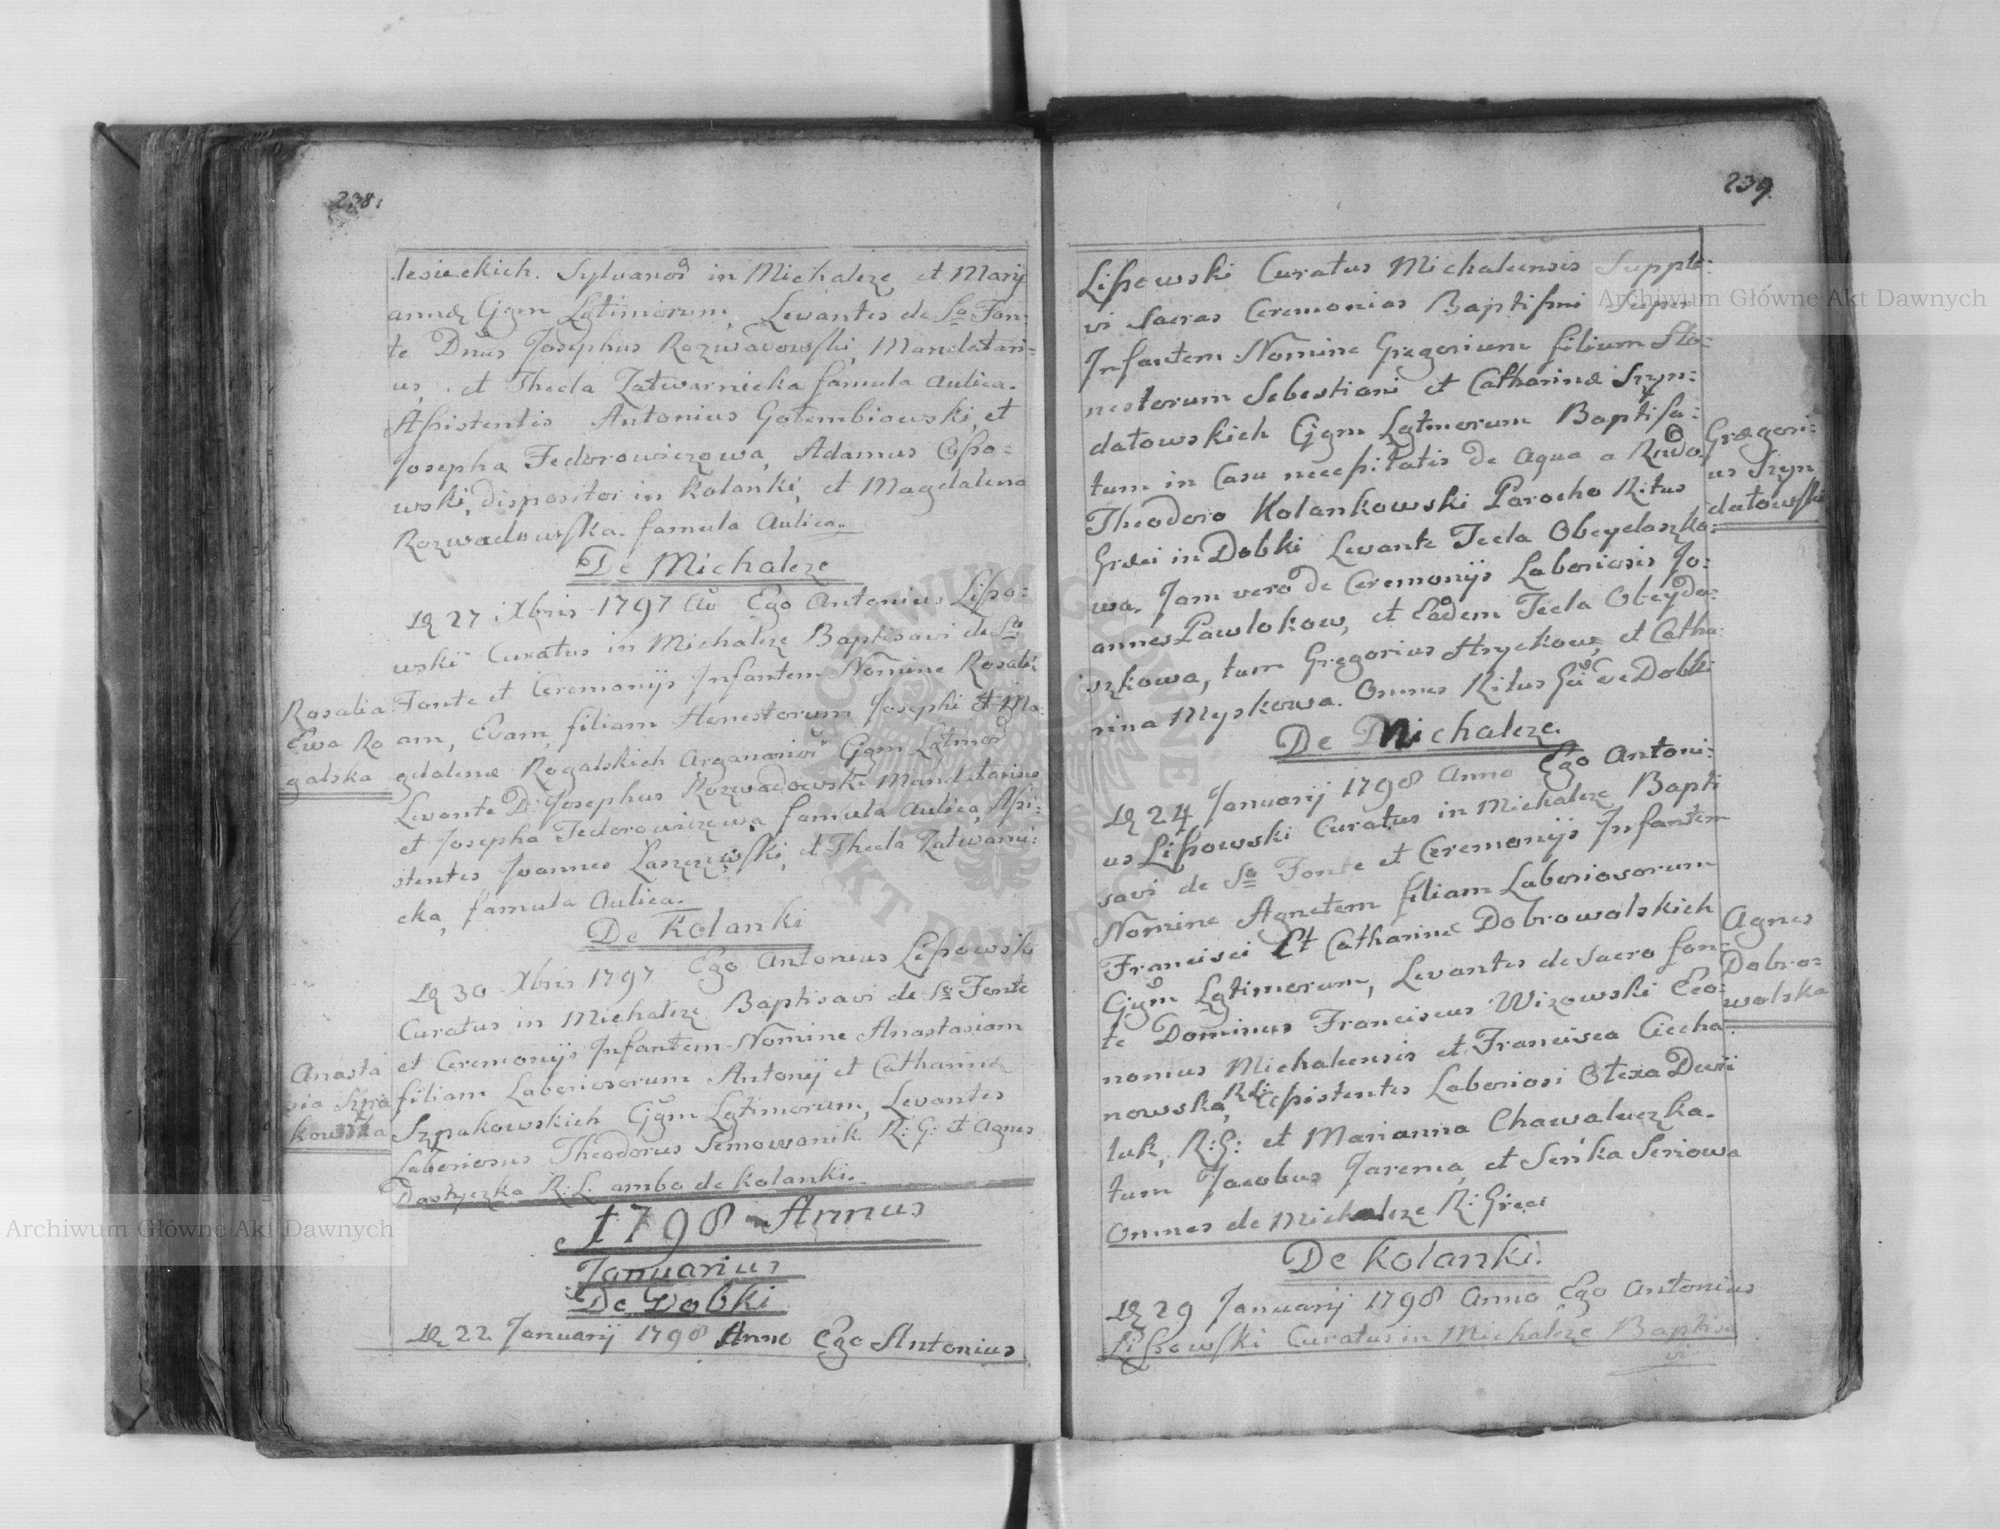 238.
lesieckich. Sylvanoȓ in Michalcze, et Mary
annæ Cjgm Lgtimorum, Levantes de So Fon-
te Dnus Josephus Rozwadowski, Mandatari=
us, et Thecla Zatwarnicka famula Aulica.
Assistentes Antonius Gołembiowski, et
Josepha Fedorowiczowa, Adamus
wski, dispositor in Kolanki, et Magdalena
Rozwadowska famula Aulica.
De Michalcze
27 Xbris 1797 Ao Ego Antonius Lisso-
wski Curatus in Michalcze Baptisavi de So
Fonte et Ceremonijs Infantem Nomine Rosali
am, Evam, filiam Honestorum Josephi et Ma-
gdalenæ Rogalskich Cjgm Lgtimor
Levante D: Josephus Rozwadowski Mandatarius
et Josepha Fedorowiczowa famula Aulica, Assi-
stentes Joannes et Thecla Zatwarni-
cka, famula Aulica.
Rosalia
Ewa Ro
galska
De Kolanki
30 Xbris 1797 Ego Antonius Lissowski
Curatus in Michalcze Baptisavi de So Fonte
et Ceremonijs Infantem Nomine Anastasiam
filiam Laboriosorum Antonij et Catharinæ
Szpakowskich Cjgm Lgtimorum, Levantes
Laboriosus Theodorus Semowonik R: G: et Agnes
Dostyczka R: L. ambo de Kolanki.
Anasta
sia Szpa
kowska
1798 Annus
Januarius
De Dobki
22 Januarij 1798 Anno Ego Antonius
239.
Lissowski Curatus Michalcensis Supple-
vi Sacras Ceremonias Baptissmi Super
Infantem Nomine Gregorium filium Ho-
nestorum Sebestiani et Catharinæ Szyn-
datowskich Cjgm Lgtmorum Baptisa-
tum in Casu necessitatis de Aqua a Rndo
Theodoro Kolankowski Parocho Ritus
Græci in Dobki Levante Tecla Obeydaszko-
wa. Jam vero de Ceremonijs Laboriosis Jo-
annes Pawlokow, et Eadem Tecla Obeyda-
szkowa, tum Gregorius Hryckow, et Catha-
rina Myskowa. Omnes Ritus Gci de Dobki
Grægori-
us Szyn
datowski
De Michalcze.
24 Januarij 1798 Anno Ego Antoni-
us Lissowski Curatus in Michalcze Bapti
savi de So Fonte et Ceremonijs Infantem
Nomine Agnetem filiam Laboriosorum
Francisci Et Catharinæ Dobrowolskich
Cjgm Lgtimorum, Levantes de Sacro fon-
te Dominus Franciscus Wizowski Eco-
nomus Michalcensis et Francisca Ciecha
nowska, R:L: Assistentes Laboriosi Olexa Deri
luk, R: G: et Marianna Chawaluczka.
tum Jacobus Jarema, et Seńka Seniowa
Omnes de Michalcze R: Græci
Agnes
Dobro-
wolska
De Kolanki.
29 Januarij 1798 Anno Ego Antonius
Lissowski Curatus in Michalcze Baptisa
vi
Archiwum Główne Akt Dawnych
Archiwum Główne Akt Dawnych
ARCHIWUM GŁÓWNE AKT DAWNYCH